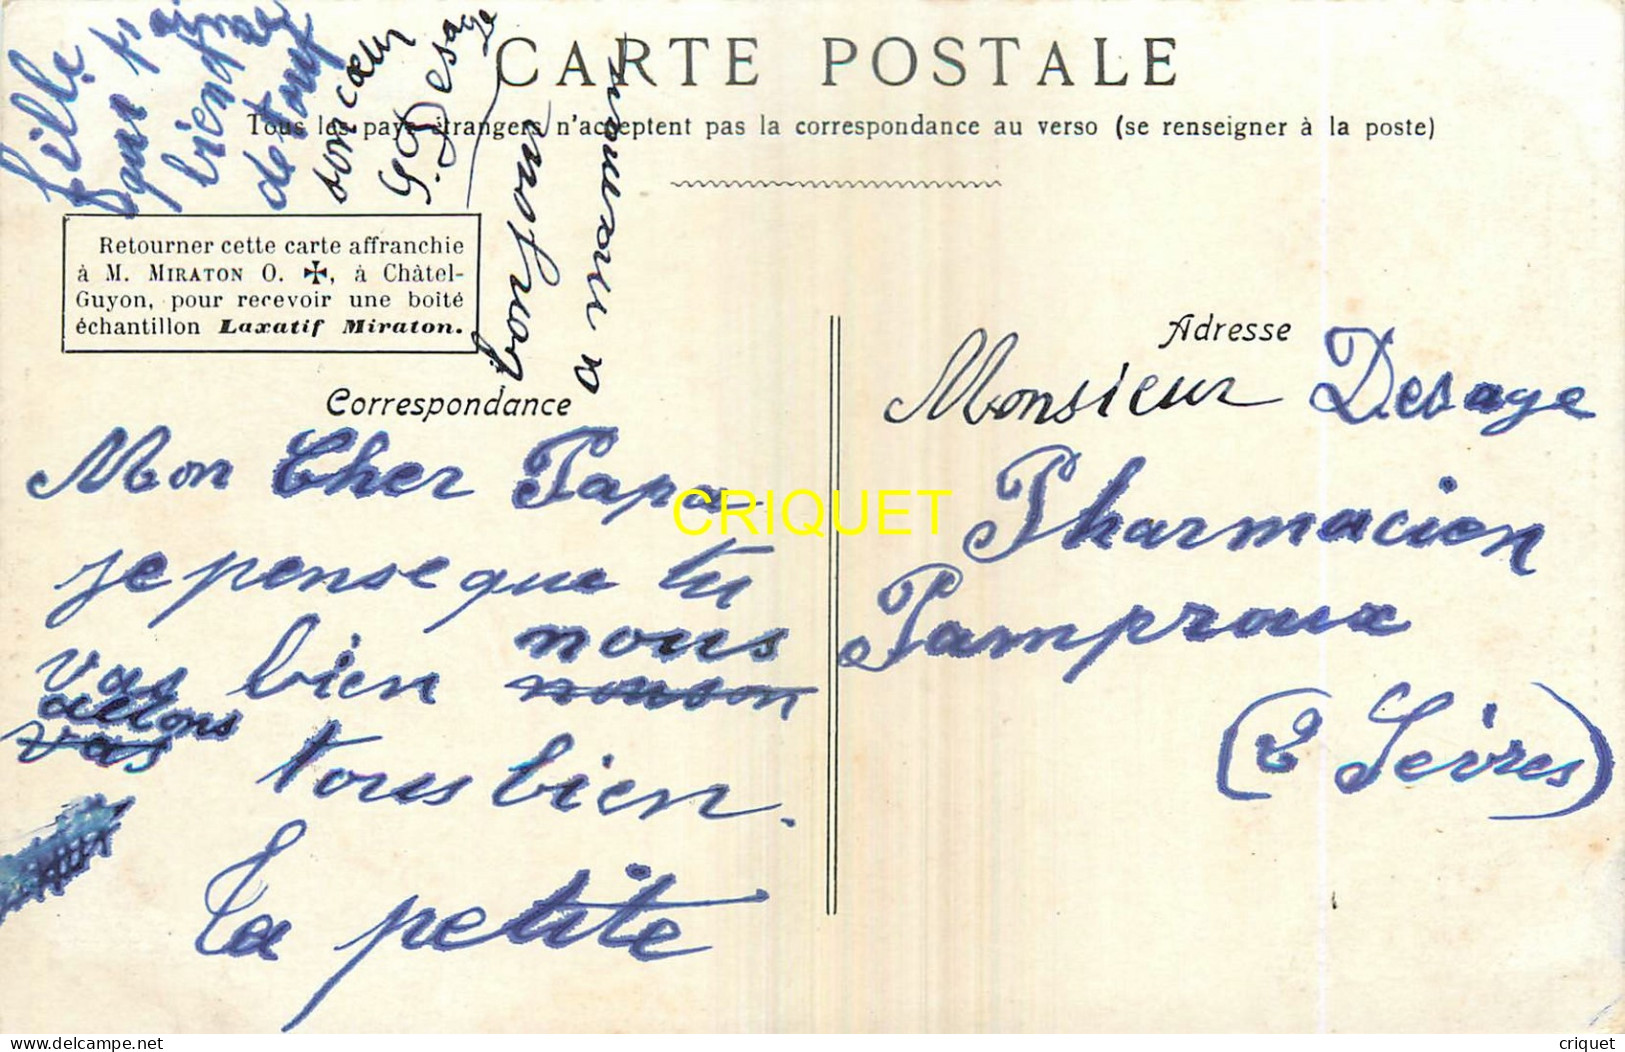 CARTE POSTALE
Tous les pays étrangers n'acceptent pas la correspondance au verso (se renseigner à la poste)
Retourner cette carte affranchie
à M. MIRATON O. ✠, à Châtel-
Guyon, pour recevoir une boîte
échantillon Laxatif Miraton.
Correspondance
Mon Cher Papa
je pense que tu
vas bien nous
allons
vas
tous bien.
Ta petite
fille
qui t'aime
bien
de tout
son cœur
Desage
bonjour
a maman
Adresse
Monsieur Desage
Pharmacien
Pamproux
(2 Sèvres)
CRIQUET
criquet
delcampe.net